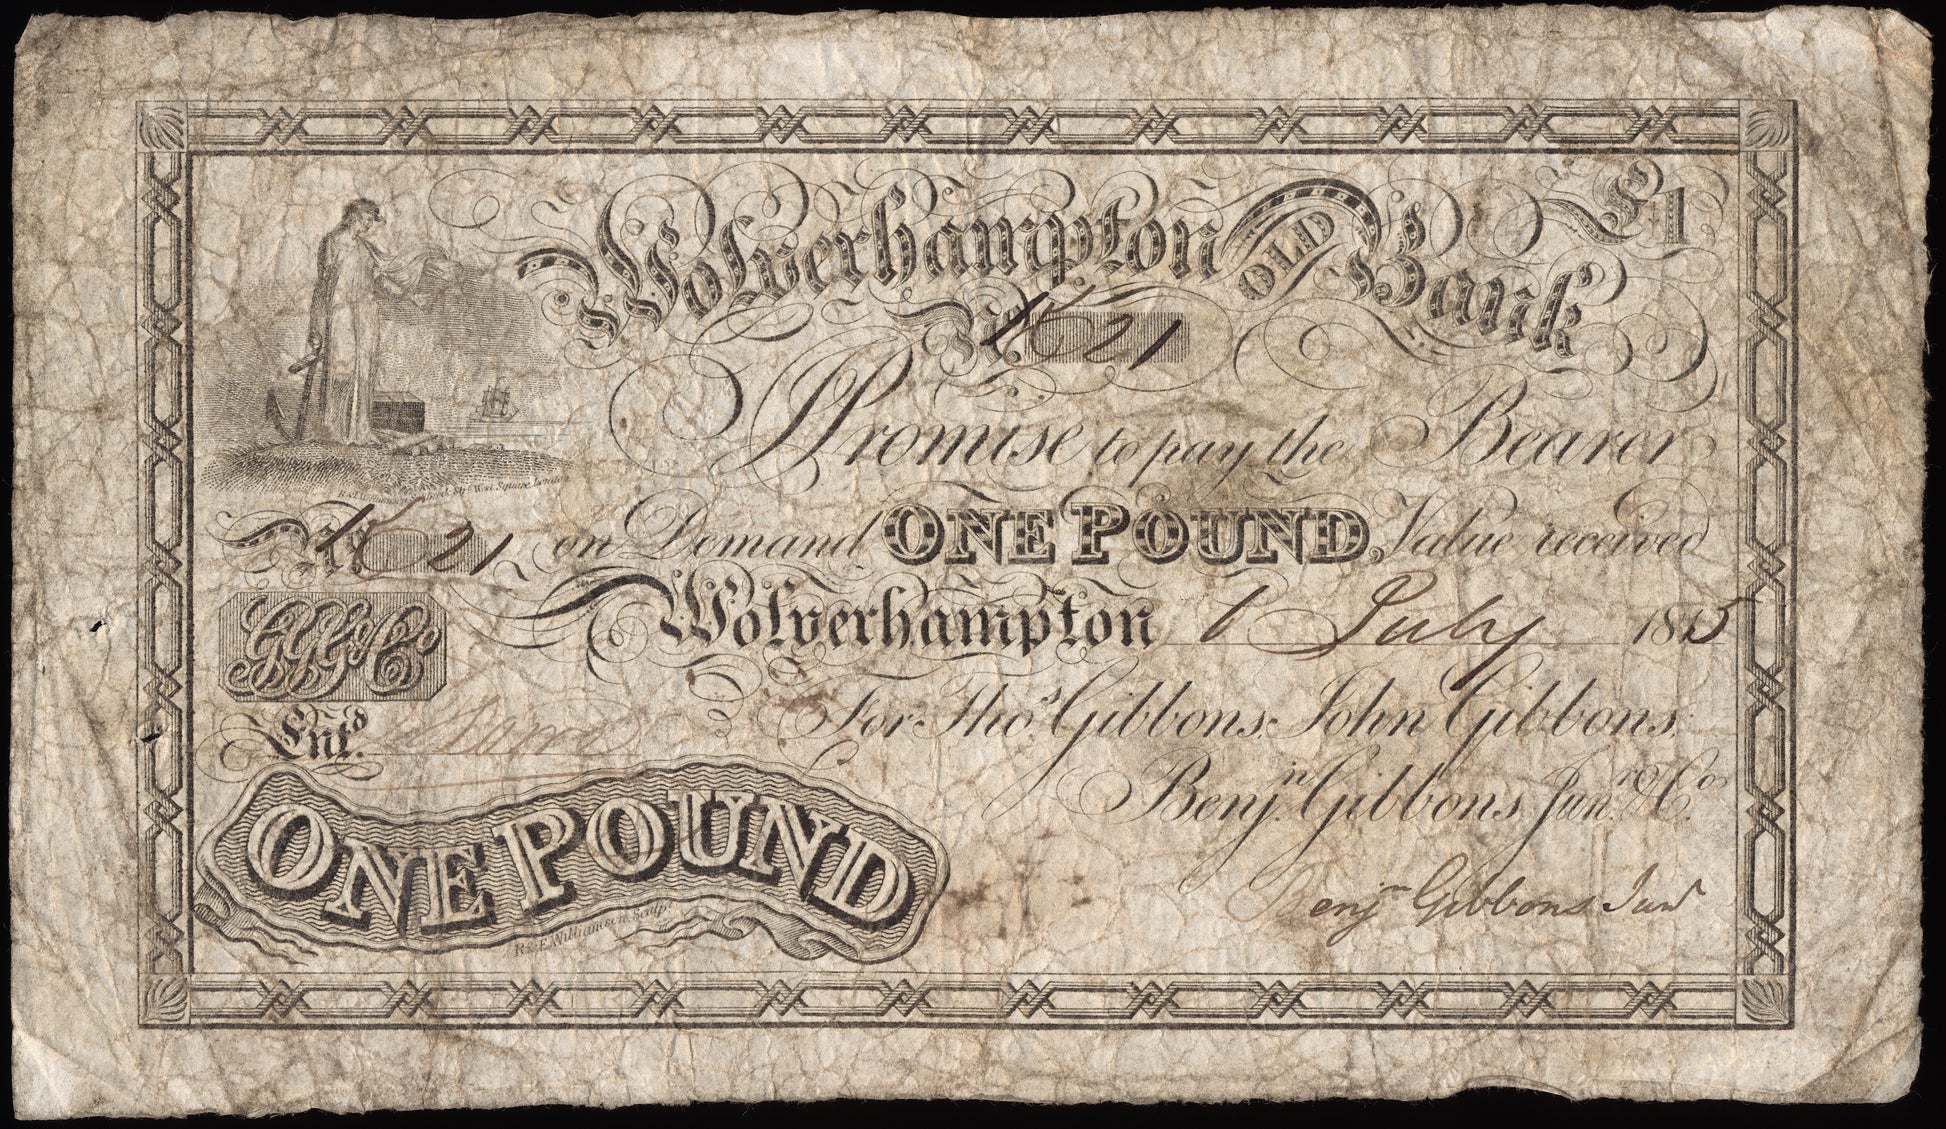 Wolverhampton OLD Bank £1
No. 21
I Promise to pay the Bearer
No. 21 on Demand ONE POUND, Value received
Wolverhampton 1 July 1815
GGG & Co
For Thos. Gibbons, John Gibbons,
Entd.
Benjn. Gibbons, Junr. & Co.
ONE POUND
R & E Williamson Sculpt
Benjn Gibbons Junr